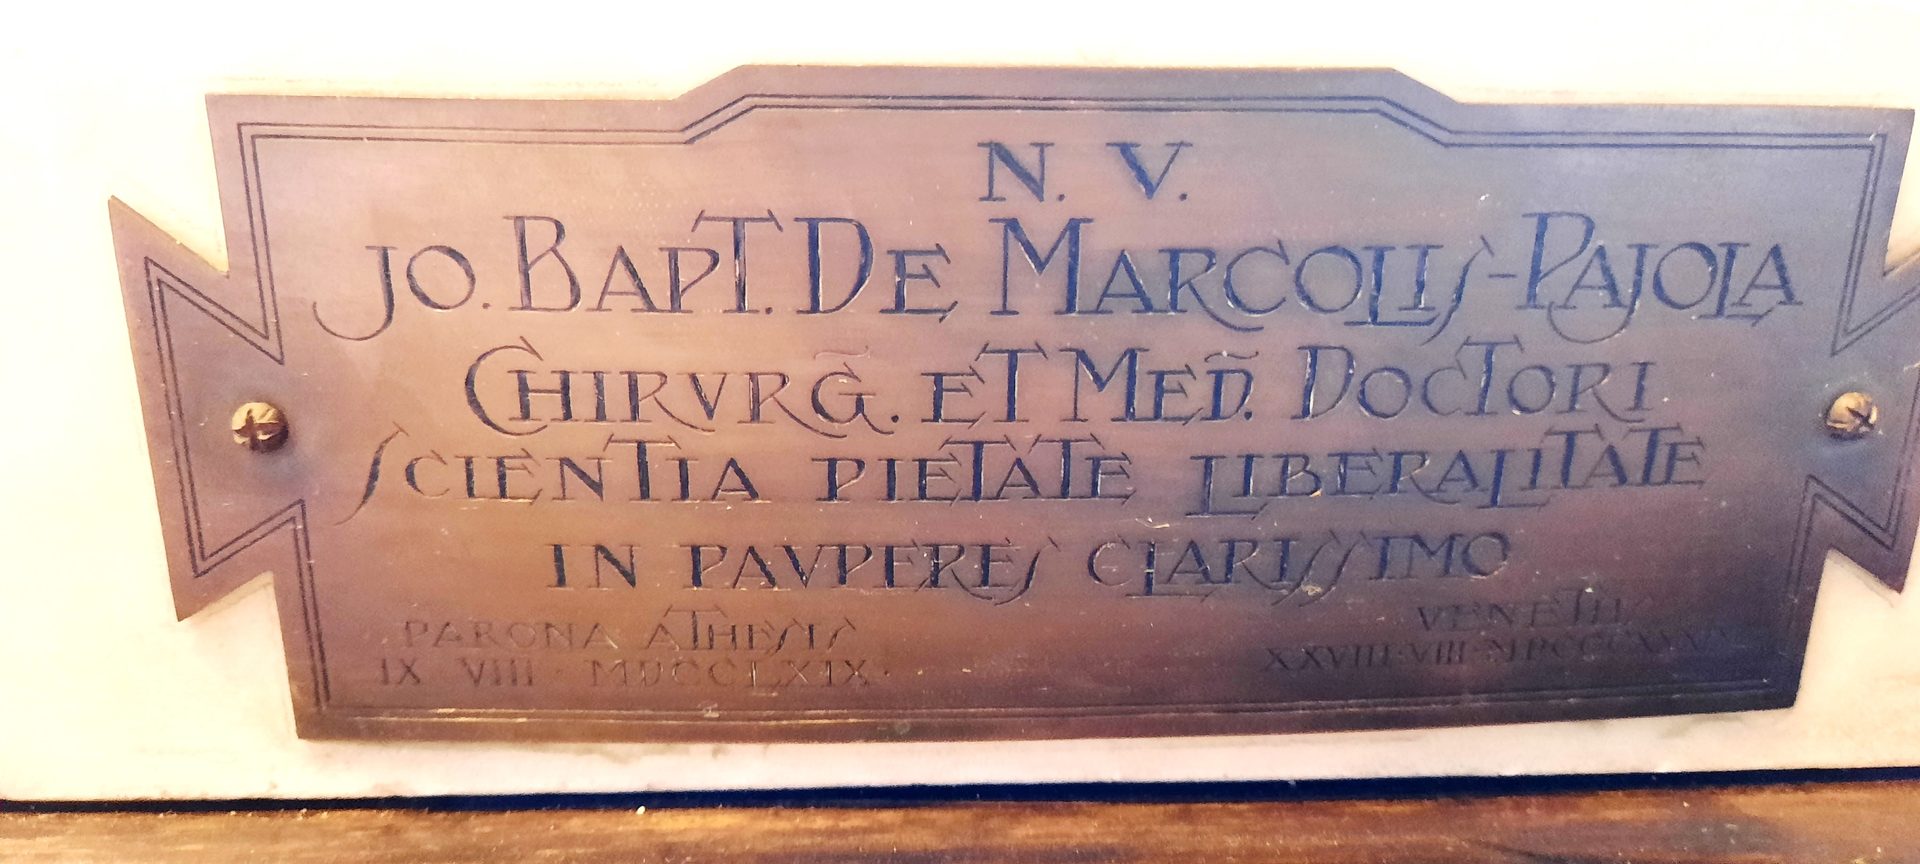 N. V.
JO. BAPT. DE MARCOLIS-PAJOLA
CHIRVRG̃. ET MED̃. DOCTORI
SCIENTIA PIETATE LIBERALITATE
IN PAVPERES CLARISSIMO
PARONA ATHESIS
IX VIII · MDCCCLXIX ·
VENETIIS
XXVIII·VIII·